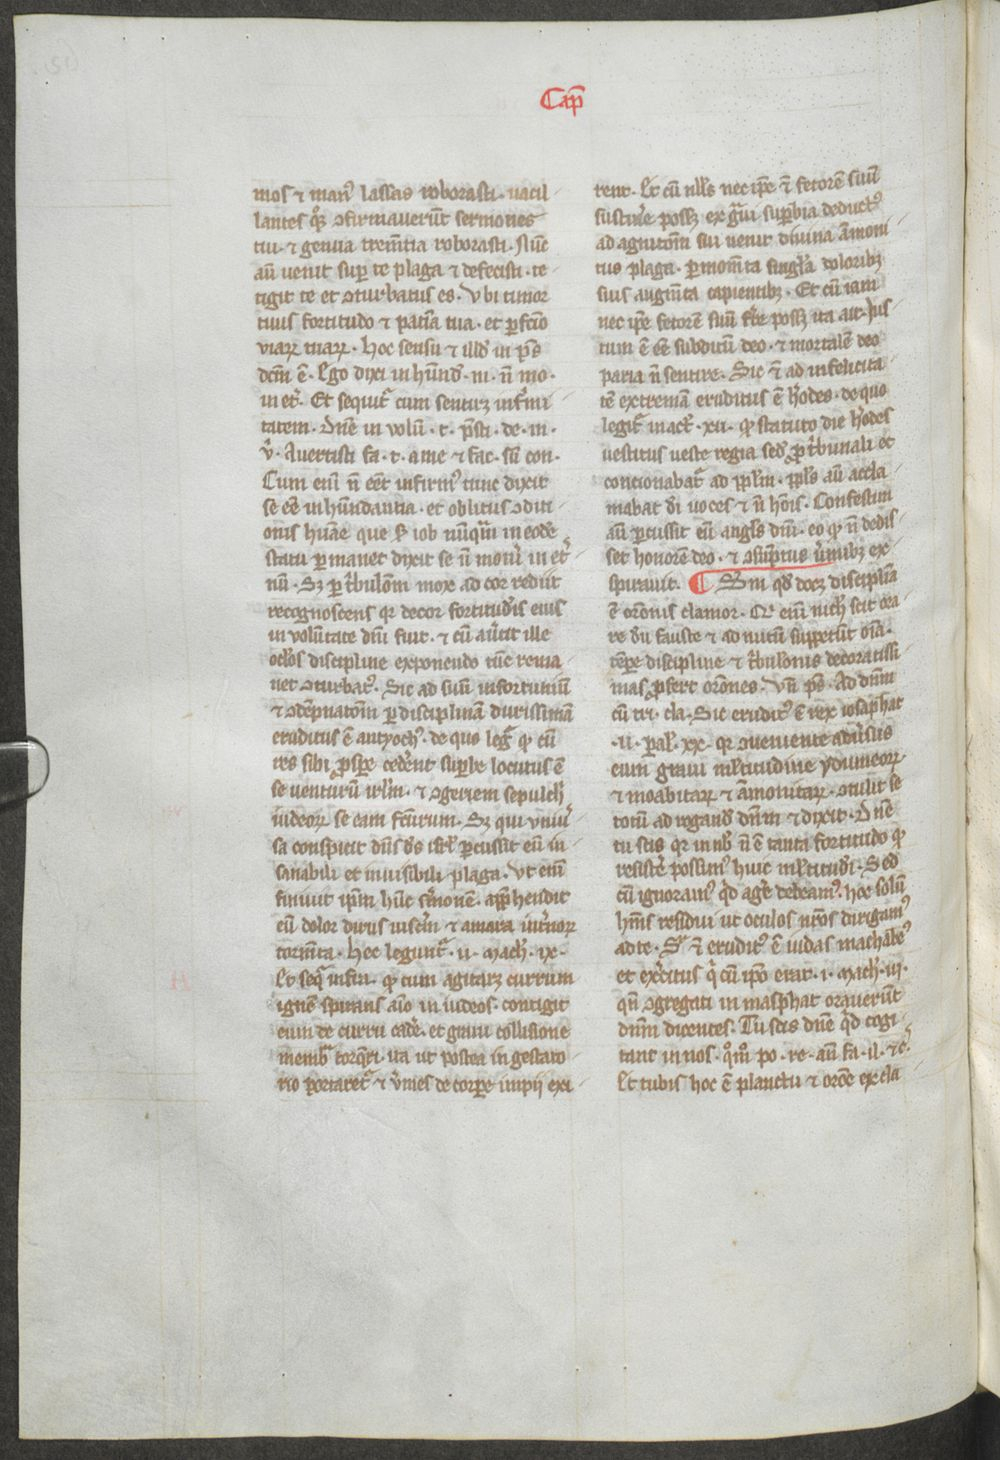 Cap̄
mos ⁊ man᷒ lassas roborasti · uacil
lantes q̄ꝫ ꝯfirmauerūt sermones
tui · ⁊ genua trem̄tia roborasti · Nūc
aū uenit sup̄ te plaga ⁊ defecisti · te
tigit te et ꝯturbatus es · Vbi timor
tuus fortitudo ⁊ paciā tua · et ꝑfcīo
viaꝝ tuaꝝ · Hoc sensu ⁊ illd̄ in ps̄
dcm̄ ē · Ego dixi in hūnd̄ · m · n̄ mo ·
in et̄ · Et sequit̄ cum sentiꝫ infirmi
tatem · Dn̄e in volū · t · p̄sti · de · m ·
v̄ · Auertisti fa · t · a me ⁊ fac · sū con ·
Cum enī n̄ eēt infirm᷒ tunc dixit
se eē in hūndantia · et oblitus ꝯditi
onis hūane que s̄ iob nūq̄m in eodē
statu ꝑmanet dixit se n̄ mouī in et̄
nū · Sꝫ ꝑ tbulōm mox ad cor rediit
recognoscens qr decor fortitudīs eius
in volūtate dn̄i fuit · ⁊ cū au̓tit ille
ocl̓os discipline exponendo tūc rema
net ꝯturbat᷒ · Sic ad suū infortuniū
⁊ ꝯdēpnatōm ꝑ disciplinā durissimā
eruditus ē antyoch᷒ · de quo leg̓ ꝙ cū
res sibi ꝓspe ceder̄ent supbe locutus ē
se uenturū irl̓m · ⁊ ꝯgeriem sepulch̓
iudeoꝝ se eam fcūrum · Sꝫ qui vniu̓
sa conspicit dn̄s ds̄ isrl̓ ꝑcussit eū in
sanabili et inuisibili plaga · Vt enī
finiuit ip̄m hūc s̄monē · app̄hendit
eū dolor dirus uiscer̄ ⁊ amara int̓noꝝ
torm̄ta · Hec legunt̄ · ii · mach̓ · ix ·
Et seq̄ infra · ꝙ cum agitaꝫ currum
ignē spirans aīo in iudeos · contigit
eum de curru cade̓ · et graui collisione
membᷓ torq̄ri · ita ut postea in gestato
rio portaret̄ ⁊ v̓mes de corpe impii exi
rent · Et cū nll̓s nec ip̄e ⁊ fetorē suū
sustine̓ possꝫ ex gᷓui supbia deduct᷒
ad agnitōm sui uenit diuina āmoni
tus plaga · ꝑ mom̄ta singl̓a doloribꝫ
suis augm̄ta capientibꝫ · Et cū iam
nec ip̄e fetorē suū fr̄e possꝫ ita ait · Jus
tum ē eē subditū deo · ⁊ mortalē deo
paria n̄ sentire · Sic ⁊ ad infelicita
tē extremā eruditus ē h̓odes · de quo
legit̄ in act᷒ · xii · ꝙ statuto die h̓odes
uestitus ueste regia sed̓ ꝓ tbunali et
concionabat̄ ad ppl̓m · ppl̓s aū accla
mabat dī uoces ⁊ n̄ hoīs · Confestim
aū ꝑcussit eū angl̓s dn̄i · eo ꝙ n̄ dedis
set honorē deo · ⁊ ꝯsūptus v̓mibꝫ ex
spirauit · ¶ Sm̄ qd̓ docꝫ discipl̓ia
ē orōnis clamor · Qr enī nich̓ scit ora
re dū fauste ⁊ ad nutū suppetūt oīa ·
tēpe discipline ⁊ tbul̓onis deuotissi
mas ꝓfert orōnes · Vn̄ ps̄ · Ad dn̄m
cū tri · cla · Sic erudit᷒ ē rex iosaphat
· ii · pal̓ · xx · qr ꝯueniente adu̓sus
eum graui ml̓titudine ydumeoꝝ
⁊ moabitaꝝ ⁊ amonitaꝝ · ꝯtulit se
totū ad rogand̓ dn̄m ⁊ dixit · Dn̄e
tu scis qr in nob̓ n̄ ē tanta fortitudo ꝙ
resiste̓ possim᷒ huic ml̓titudī · Sed
cū ignoram᷒ qͥd age̓ debeam᷒ · hoc solū
hēm̄s residui ut oculos nr̄os dirigam᷒
ad te · Sꝭ ⁊ erudit᷒ ē iudas machabe᷒
et exc̓itus qͥ cū ip̄o erat · i · mach̓ · iii ·
qn̄ ꝯgregati in masphat orauerūt
dn̄m dicentes · Tu scis dn̄e qͥd cogi
tant in nos · qͦm̄ po · re · an̄ fa · il · ⁊c̓
Et tubis hoc ē planctu ⁊ orōe excla